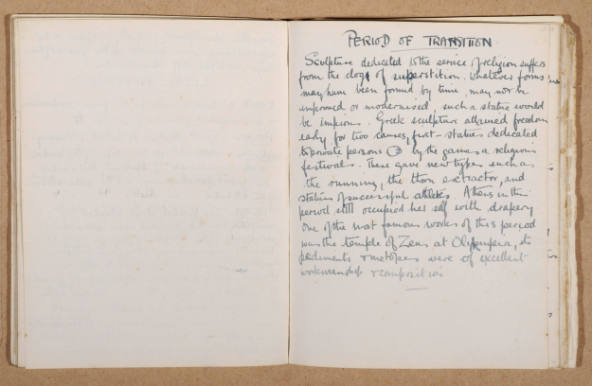 PERIOD OF TRANSITION
Sculpture dedicated to the service of religion suffers
from the clogs of superstition. Whatever forms
may have been formed by time, may not be
improved or modernised, such a statue would
be impious. Greek sculpture attained freedom
early for two causes, first - statues dedicated
to private persons by the games & religious
festivals. These gave new types such as
the running, the thorn extractor, and
statues of successful athletes. Athens in this
period still occupied her self with drapery
One of the most famous works of this period
was the temple of Zeus at Olympia, its
pediments & metopes were of excellent
workmanship & composition